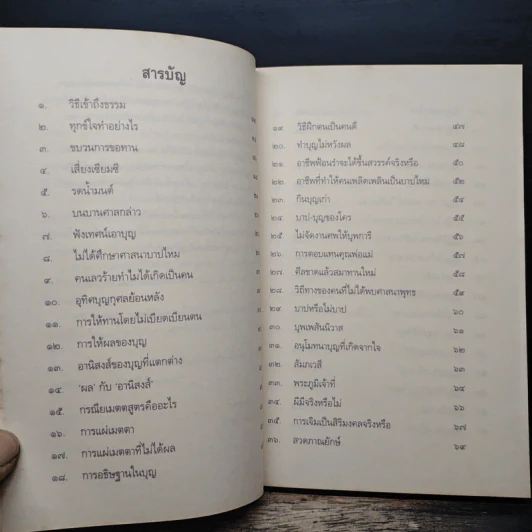 สารบัญ
๑. วิธีเข้าถึงธรรม
๒. ทุกข์ใจทำอย่างไร
๓. ขบวนการขอทาน
๔. เสี่ยงเซียมซี
๕. รดน้ำมนต์
๖. บนบานศาลกล่าว
๗. ฟังเทศน์เอาบุญ
๘. ไม่ได้ศึกษาศาสนาบาปไหม
๙. คนเลวร้ายทำไมได้เกิดเป็นคน
๑๐. อุทิศบุญกุศลย้อนหลัง
๑๑. การให้ทานโดยไม่เบียดเบียนตน
๑๒. การให้ผลของบุญ
๑๓. อานิสงส์ของบุญที่แตกต่าง
๑๔. 'ผล' กับ 'อานิสงส์'
๑๕. กรณียเมตตสูตรคืออะไร
๑๖. การแผ่เมตตา
๑๗. การแผ่เมตตาที่ไม่ได้ผล
๑๘. การอธิษฐานในบุญ
๑๙. วิธีฝึกตนเป็นคนดี ๔๗
๒๐. ทำบุญไม่หวังผล ๔๘
๒๑. อาชีพฟ้อนรำจะได้ขึ้นสวรรค์จริงหรือ ๕๐
๒๒. อาชีพที่ทำให้คนเพลิดเพลินเป็นบาปไหม ๕๒
๒๓. กินบุญเก่า ๕๔
๒๔. บาป-บุญของใคร ๕๕
๒๕. ไม่จัดงานศพให้บุพการี ๕๖
๒๖. การตอบแทนคุณพ่อแม่ ๕๗
๒๗. ศีลขาดแล้วสมาทานใหม่ ๕๘
๒๘. วิถีทางของคนที่ไม่ได้พบศาสนาพุทธ ๕๙
๒๙. บาปหรือไม่บาป ๖๐
๓๐. บุพเพสันนิวาส ๖๑
๓๑. อนุโมทนาบุญที่เกิดจากใจ ๖๒
๓๒. สัมภเวสี ๖๓
๓๓. พระภูมิเจ้าที่ ๖๔
๓๔. ผีมีจริงหรือไม่ ๖๖
๓๕. การเจิมเป็นสิริมงคลจริงหรือ ๖๗
๓๖. สวดภาณยักษ์ ๖๙